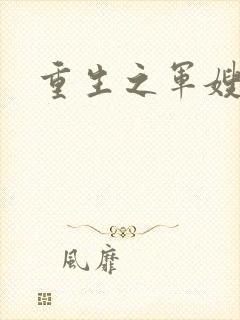 重生之軍嫂
風靡